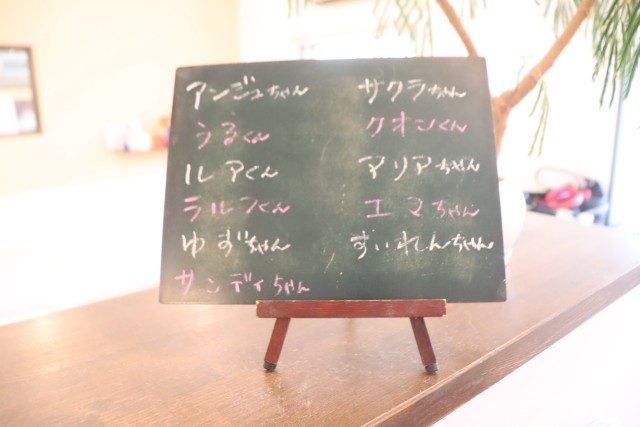 アンジュちゃん
うるくん
ルアくん
ラルンくん
ゆずちゃん
サンディちゃん
サクラちゃん
クオンくん
アリアちゃん
エマちゃん
すいれんちゃん